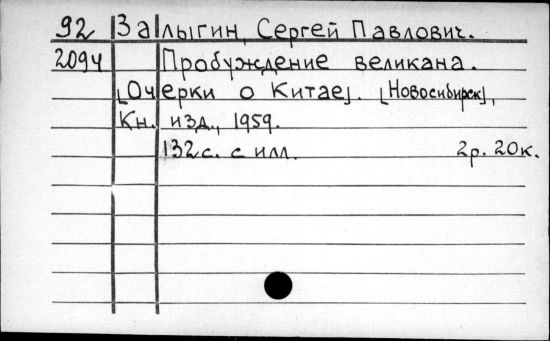 92 Залыгин, Сергей Павлович.
2094 Пробуждение великана.
[Очерки о Китае]. [Новосибирск],
Кн. изд., 1959.
132 с. с илл. 2р. 20к.